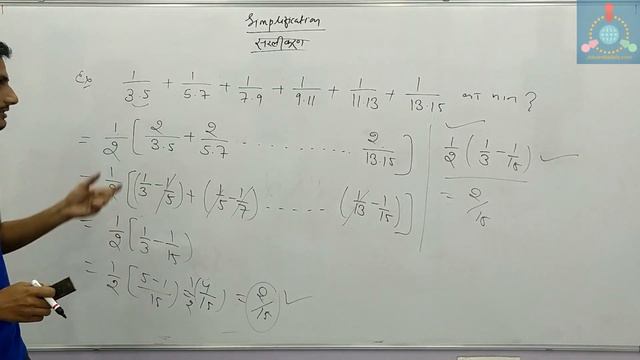 Simplification
सरलीकरण
Ex 1/3.5 + 1/5.7 + 1/7.9 + 1/9.11 + 1/11.13 + 1/13.15 का मान ?
= 1/2 [ 2/3.5 + 2/5.7 .............. 2/13.15 ]
= 1/2 [ (1/3 - 1/5) + (1/5 - 1/7) ..... (1/13 - 1/15) ]
= 1/2 [ 1/3 - 1/15 )
= 1/2 [ 5-1/15 ) = 1/2 ( 4/15 ) = 2/15 ✓
1/2 ( 1/3 - 1/15 ) ✓
= 2/15